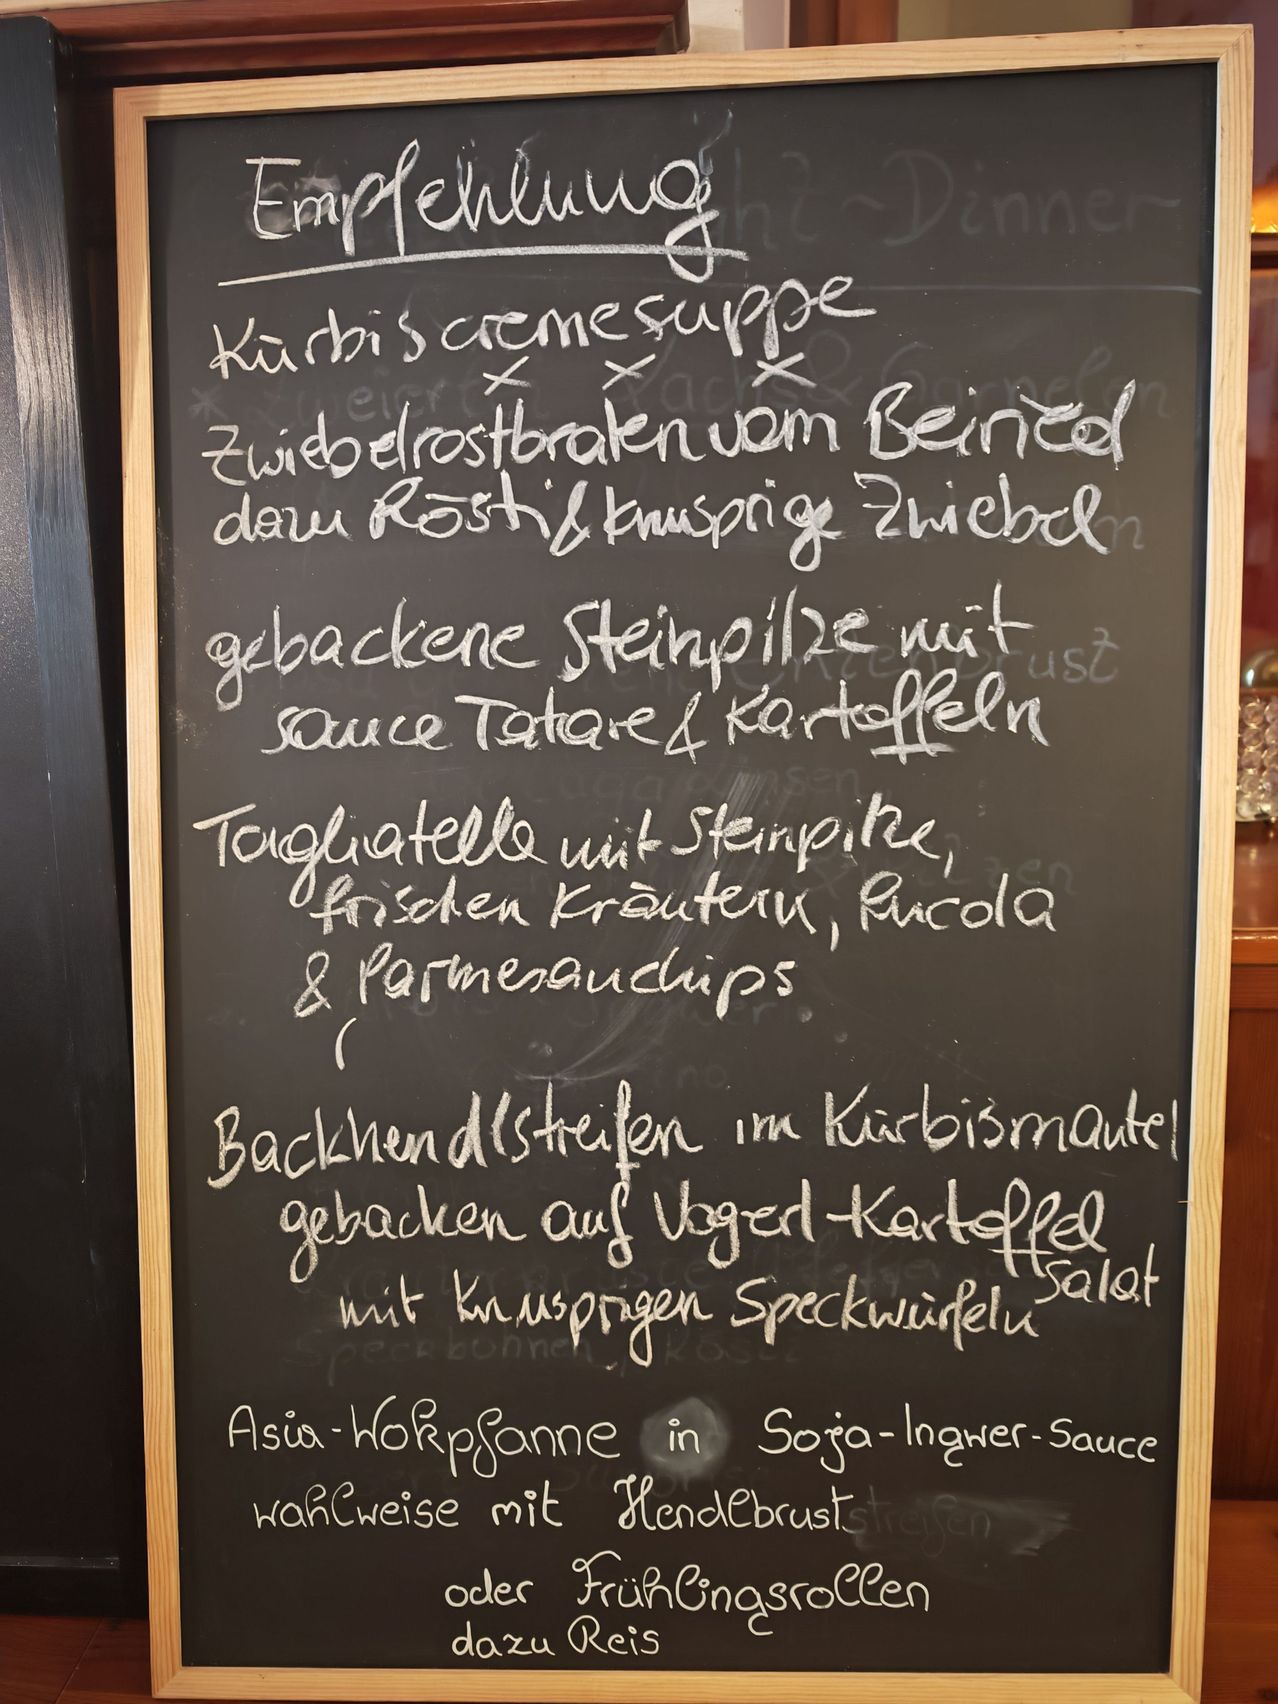 Empfehlung
Kürbiscremesuppe
x x x
Zwiebelrostbraten vom Beiried
dazu Rösti & knusprige Zwiebel
gebackene Steinpilze mit
sauce Tatare & Kartoffeln
Tagliatelle mit Steinpilze,
frischen Kräutern, Rucola
& Parmesanchips
(
Backhendlstreifen im Kürbismantel
gebacken auf Vogerl-Kartoffel
salat
mit knusprigen Speckwürfeln
Asia-Wokpfanne in Soja-Ingwer-Sauce
wahlweise mit Hendlbruststreifen
oder Frühlingsrollen
dazu Reis